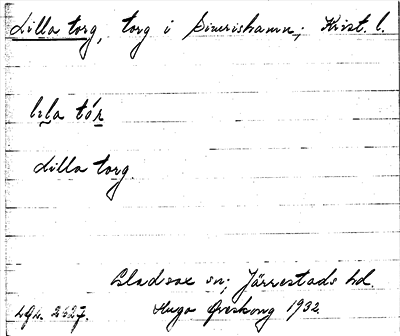 Lilla torg, torg i Simrishamn; Krist. l.
lila tór
Lilla torg.
Gladsax sn; Järrestads hd.
LGA. 2627. Hugo Areskoug 1932.